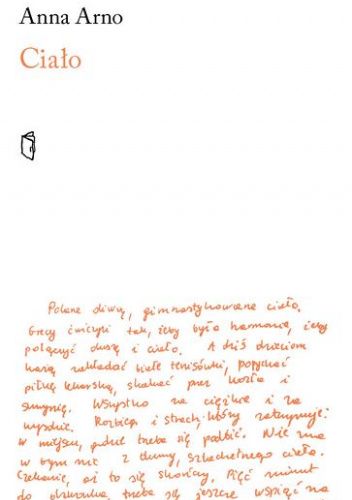 Anna Arno
Ciało
Polane oliwą, gimnastykowane ciało.
Grecy ćwiczyli tak, żeby była harmonia, żeby
połączyć duszę i ciało. A dziś dzieciom
każą zakładać białe tenisówki, popychać
piłkę lekarską, skakać przez kozła i
skrzynię. Wszystko na ciężkie i na
wysokie. Rozbieg i strach, który zatrzymuje
w miejscu, gdzie trzeba się podbić. Nie ma
w tym nic z dumy, szlachetnego ciała.
Czekanie, aż to się skończy. Pięć minut
do dzwonka, trzeba się jeszcze wspiąć na